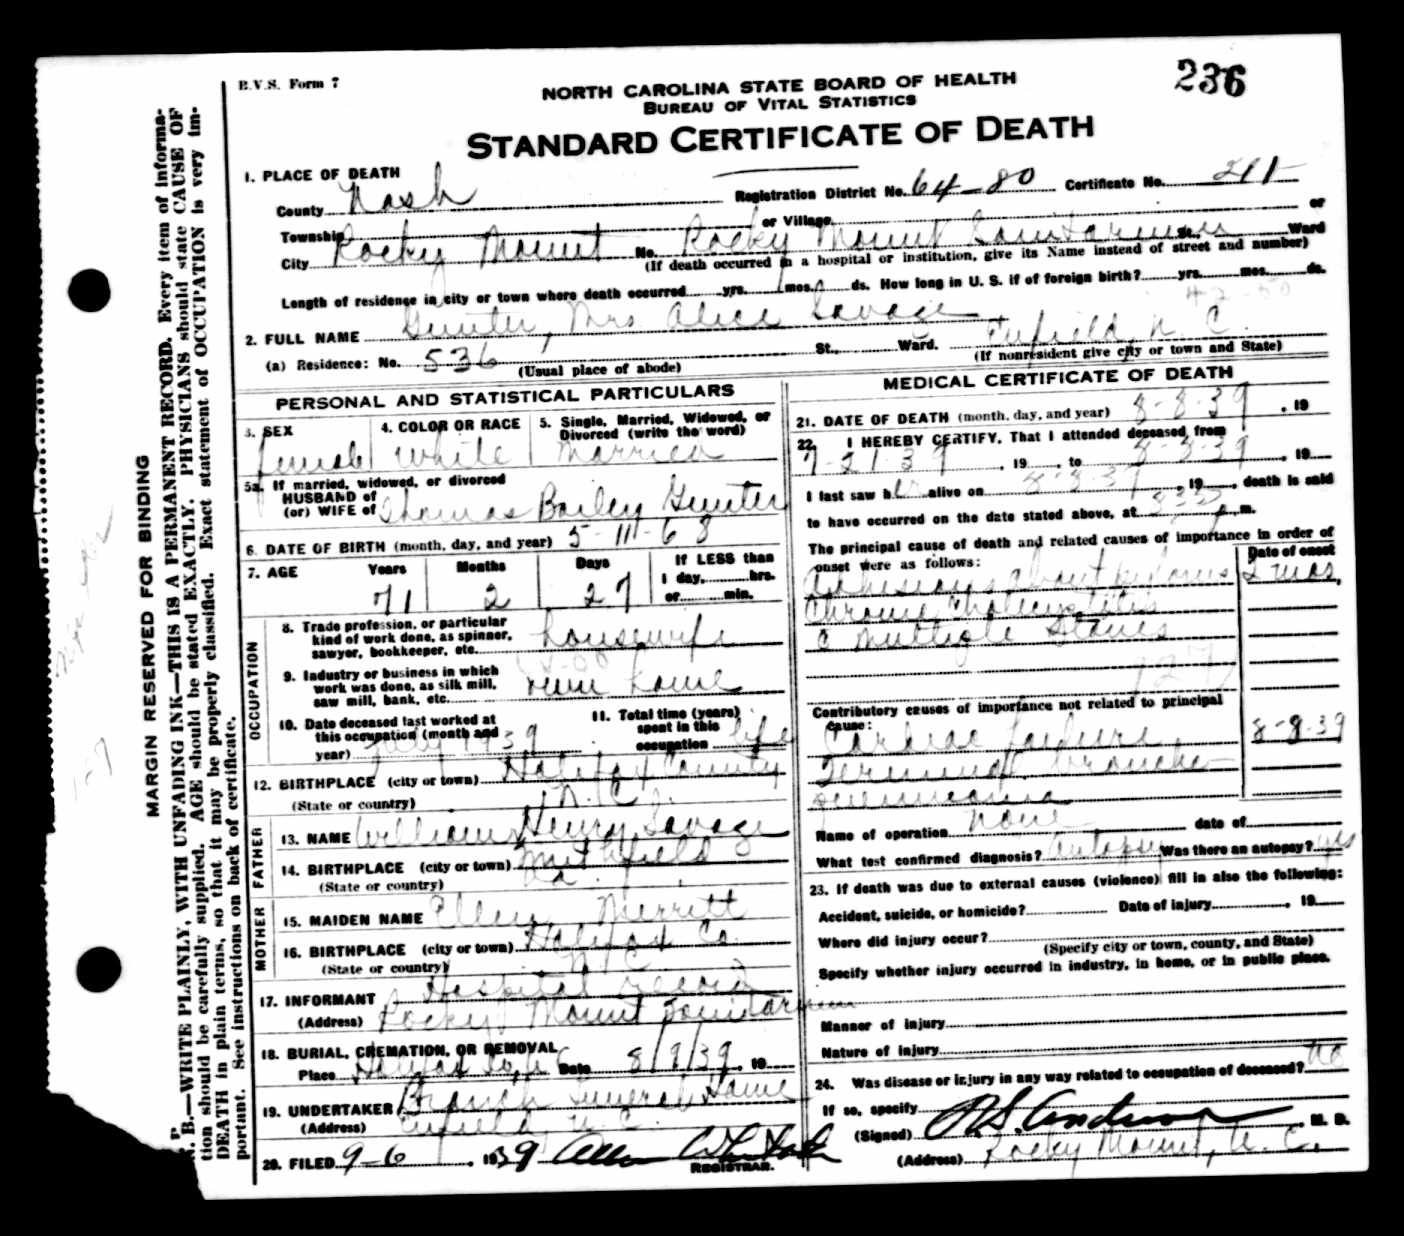 B.V.S. Form 7
236
NORTH CAROLINA STATE BOARD OF HEALTH
BUREAU OF VITAL STATISTICS
STANDARD CERTIFICATE OF DEATH
1. PLACE OF DEATH
County Nash Registration District No. 64-80 Certificate No. 211
Township or Village or
City Rocky Mount No. Rocky Mount Sanitarium St. Ward
(If death occurred in a hospital or institution, give its Name instead of street and number)
Length of residence in city or town where death occurred yrs. mos. ds. How long in U. S. if of foreign birth? yrs. mos. ds.
2. FULL NAME Gunter, Mrs Alice Savage
(a) Residence: No. 536 St., Ward. Enfield, N. C.
(Usual place of abode) (If nonresident give city or town and State)
PERSONAL AND STATISTICAL PARTICULARS
3. SEX female
4. COLOR OR RACE White
5. Single, Married, Widowed, or Divorced (write the word) Married
5a. If married, widowed, or divorced
HUSBAND of
(or) WIFE of Thomas Bailey Gunter
6. DATE OF BIRTH (month, day, and year) 5-11-68
7. AGE Years 71 Months 2 Days 27 If LESS than 1 day, hrs. or min.
OCCUPATION
8. Trade profession, or particular kind of work done, as spinner, sawyer, bookkeeper, etc. housewife
9. Industry or business in which work was done, as silk mill, saw mill, bank, etc. own home
10. Date deceased last worked at this occupation (month and year) July 1939
11. Total time (years) spent in this occupation life
12. BIRTHPLACE (city or town) Halifax County
(State or country) N. C.
FATHER
13. NAME William Henry Savage
14. BIRTHPLACE (city or town) Smithfield
(State or country) Va.
MOTHER
15. MAIDEN NAME Ellen Merritt
16. BIRTHPLACE (city or town) Halifax Co.
(State or country) N C
17. INFORMANT Hospital record
(Address) Rocky Mount Sanitarium
18. BURIAL, CREMATION, OR REMOVAL
Place Halifax Co, N C Date 8/9/39, 19
19. UNDERTAKER Branch Funeral Home
(Address) Enfield, N. C.
20. FILED 9-6, 1939
REGISTRAR.
MEDICAL CERTIFICATE OF DEATH
21. DATE OF DEATH (month, day, and year) 8-8-39, 19
22. I HEREBY CERTIFY, That I attended deceased from
7-21-39, 19, to 8-8-39, 19
I last saw her alive on 8-8-39, 19, death is said
to have occurred on the date stated above, at m.
The principal cause of death and related causes of importance in order of
onset were as follows: Date of onset
Adhesions about pylorus 2 mos.
Chronic Cholecystitis
c multiple stones
127
Contributory causes of importance not related to principal
cause:
Cardiac failure 8-8-39
Terminal broncho-
pneumonia
Name of operation none date of
What test confirmed diagnosis? Autopsy Was there an autopsy? yes
23. If death was due to external causes (violence) fill in also the following:
Accident, suicide, or homicide? Date of injury , 19
Where did injury occur?
(Specify city or town, county, and State)
Specify whether injury occurred in industry, in home, or in public place.
Manner of injury
Nature of injury
24. Was disease or injury in any way related to occupation of deceased? no
If so, specify
(Signed) M. D.
(Address) Rocky Mount, N. C.
MARGIN RESERVED FOR BINDING
N. B.—WRITE PLAINLY, WITH UNFADING INK—THIS IS A PERMANENT RECORD. Every item of informa-
tion should be carefully supplied. AGE should be stated EXACTLY. PHYSICIANS should state CAUSE OF
DEATH in plain terms, so that it may be properly classified. Exact statement of OCCUPATION is very im-
portant. See instructions on back of certificate.